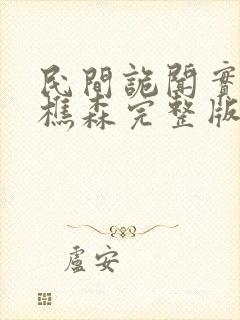 民間詭聞實
樵森完整版
盧安